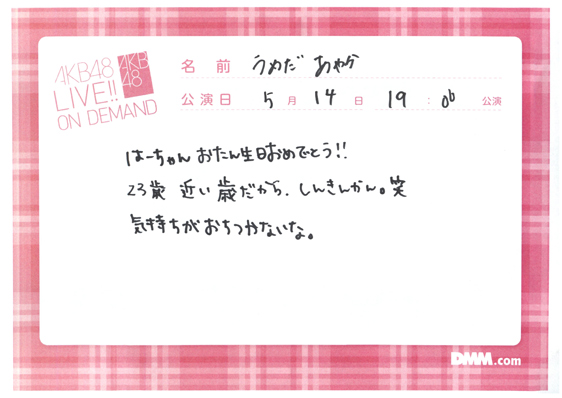 AKB48
LIVE!!
ON DEMAND
AKB
48
名 前 うめだ あやか
公演日 5 月 14 日 19 : 00 公演
はーちゃん おたん生日おめでとう!!
23歳 近い歳だから、しんきんかん。笑
気持ちがおちつかないな。
DMM.com